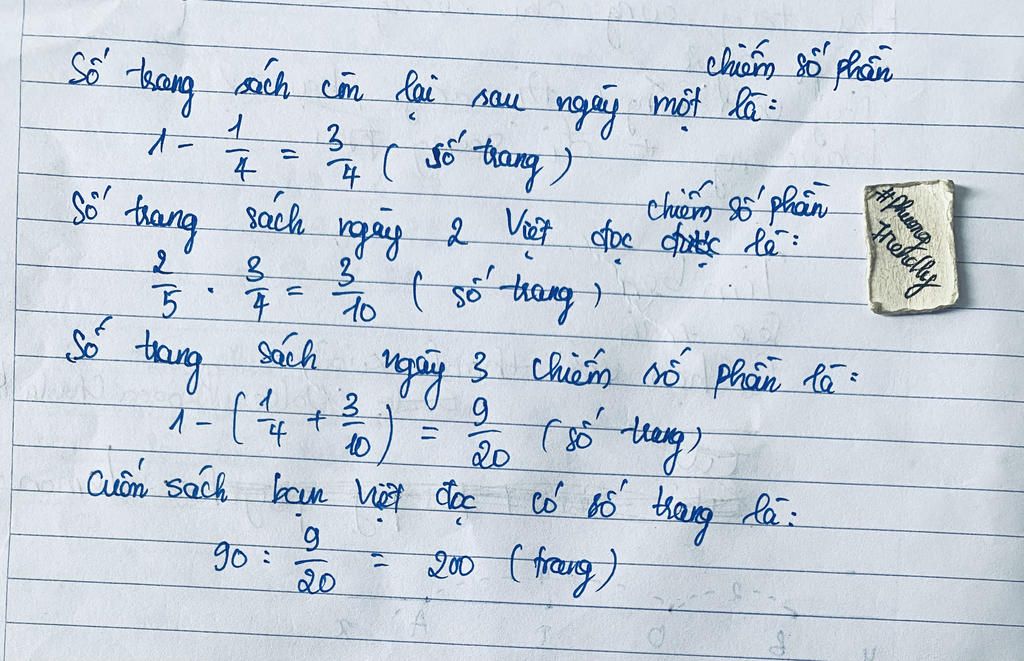 chiếm số phần
Số trang sách còn lại sau ngày một là:
1 - 1/4 = 3/4 ( số trang )
chiếm số phần
Số trang sách ngày 2 Việt đọc được là:
2/5 . 3/4 = 3/10 ( số trang )
Số trang sách ngày 3 chiếm số phần là:
1 - ( 1/4 + 3/10 ) = 9/20 ( số trang )
Cuốn sách bạn Việt đọc có số trang là:
90 : 9/20 = 200 ( trang )
#Phuong